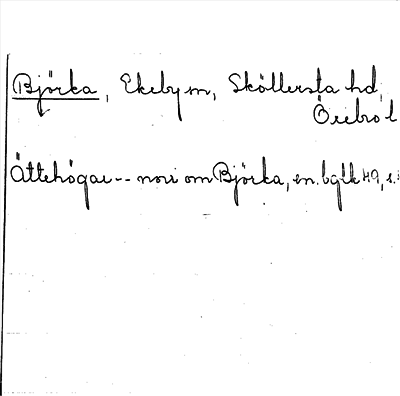 Björka, Ekeby sn, Sköllersta hd,
Örebro l
Ättehögar -- norr om Björka, en.